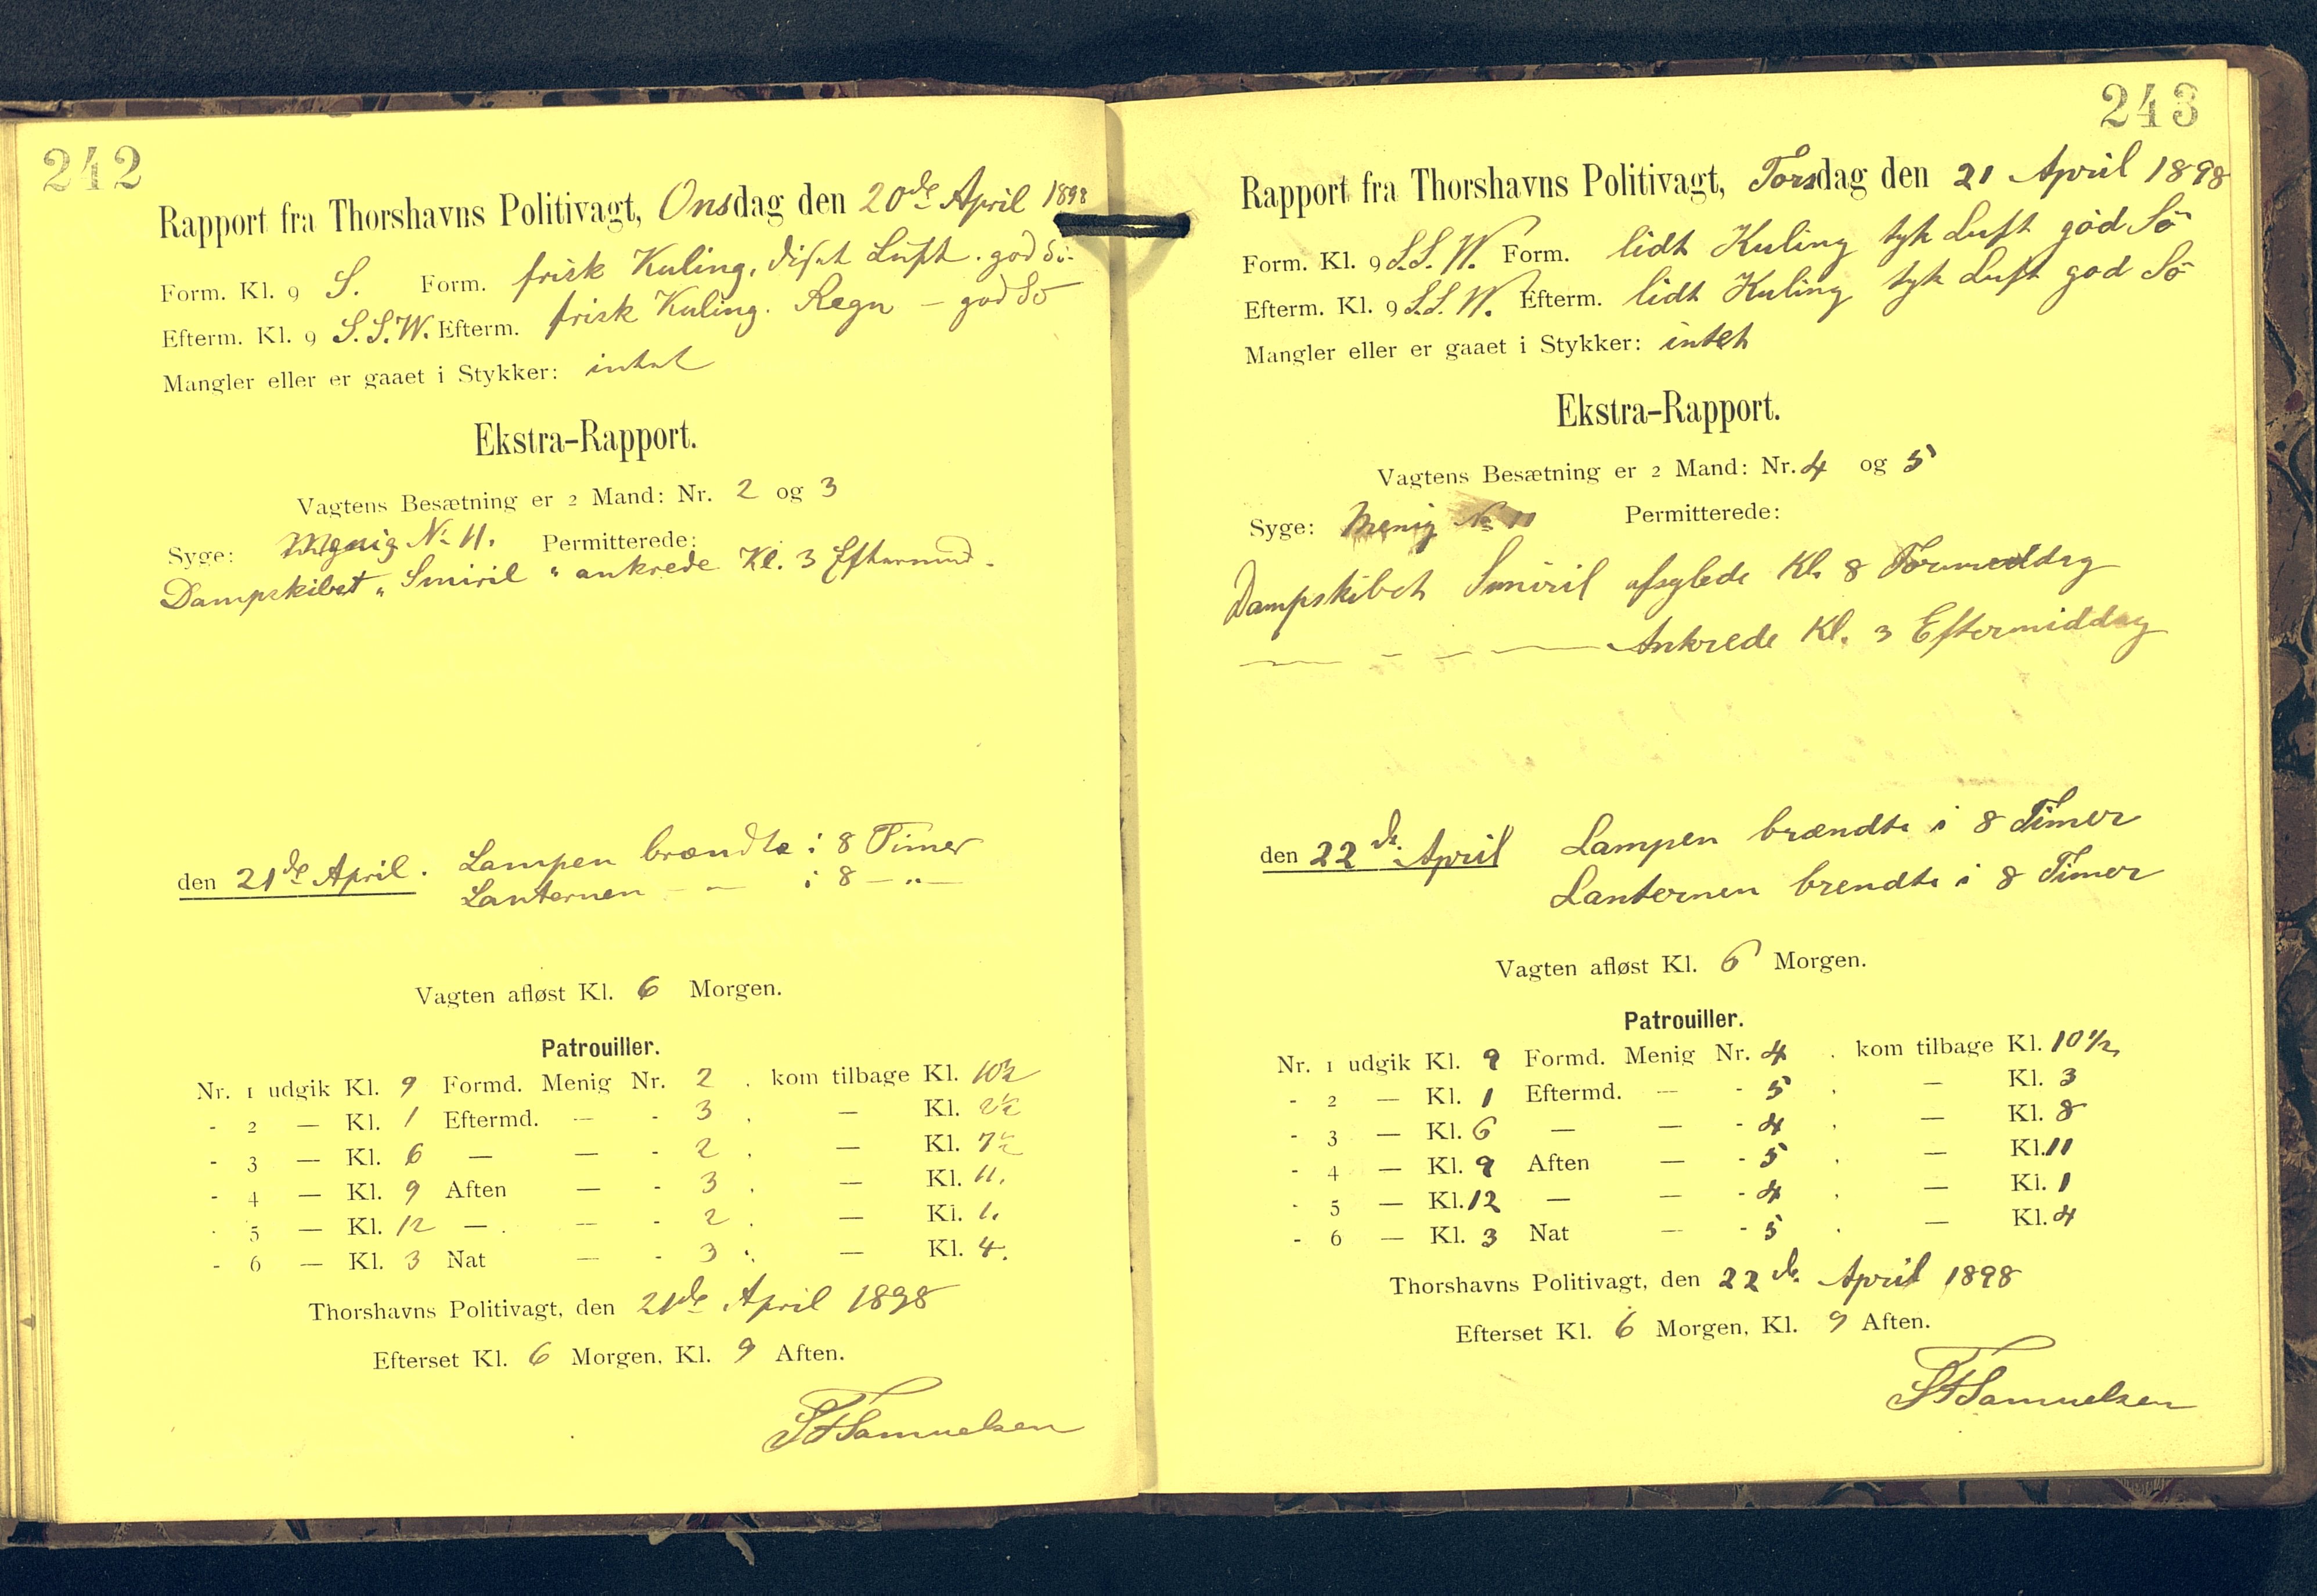 242
Rapport fra Thorshavns Politivagt, Onsdag den 20de April 1898
Form. Kl. 9 S. Form. frisk Kuling, disat Luft. god Sö.
Efterm. Kl. 9 S.S.W. Efterm. frisk Kuling. Regn — god Sö
Mangler eller er gaaet i Stykker: intet
Ekstra-Rapport.
Vagtens Besætning er 2 Mand: Nr. 2 og 3
Syge: Menig No 11. Permitterede:
Dampskibet „Smiril" ankrede Kl. 3 Eftermid.
den 21de April. Lampen brændte i 8 Timer
Lanternen — — i 8 — „ —
Vagten afløst Kl. 6 Morgen.
Patrouiller.
Nr. 1 udgik Kl. 9 Formd. Menig Nr. 2 . kom tilbage Kl. 10½
- 2 — Kl. 1 Eftermd. — - 3 . — Kl. 2½
- 3 — Kl. 6 — — - 2 . — Kl. 7½
- 4 — Kl. 9 Aften — - 3 . — Kl. 11.
- 5 — Kl. 12 — . — - 2 . — Kl. 1.
- 6 — Kl. 3 Nat — - 3 . — Kl. 4.
Thorshavns Politivagt, den 21de April 1898
Efterset Kl. 6 Morgen, Kl. 9 Aften.
SFSamuelsen
243
Rapport fra Thorshavns Politivagt, Torsdag den 21 April 1898
Form. Kl. 9 S.S.W. Form. lidt Kuling tyk Luft god Sö
Efterm. Kl. 9 S.S.W. Efterm. lidt Kuling tyk Luft god Sö
Mangler eller er gaaet i Stykker: intet
Ekstra-Rapport.
Vagtens Besætning er 2 Mand: Nr. 4 og 5
Syge: Menig No 11 Permitterede:
Dampskibet Smiril afsglede Kl. 8 Formeddag
— - - — Ankrede Kl. 3 Eftermiddag
den 22de April Lampen brændte i 8 Timer
Lanternen brendte i 8 Timer
Vagten afløst Kl. 6 Morgen.
Patrouiller.
Nr. 1 udgik Kl. 9 Formd. Menig Nr. 4 . kom tilbage Kl. 10½
- 2 — Kl. 1 Eftermd. — - 5 . — Kl. 3
- 3 — Kl. 6 — — - 4 . — Kl. 8
- 4 — Kl. 9 Aften — - 5 . — Kl. 11
- 5 — Kl. 12 — — - 4 . — Kl. 1
- 6 — Kl. 3 Nat — - 5 . — Kl. 4
Thorshavns Politivagt, den 22de April 1898
Efterset Kl. 6 Morgen, Kl. 9 Aften.
SFSamuelsen